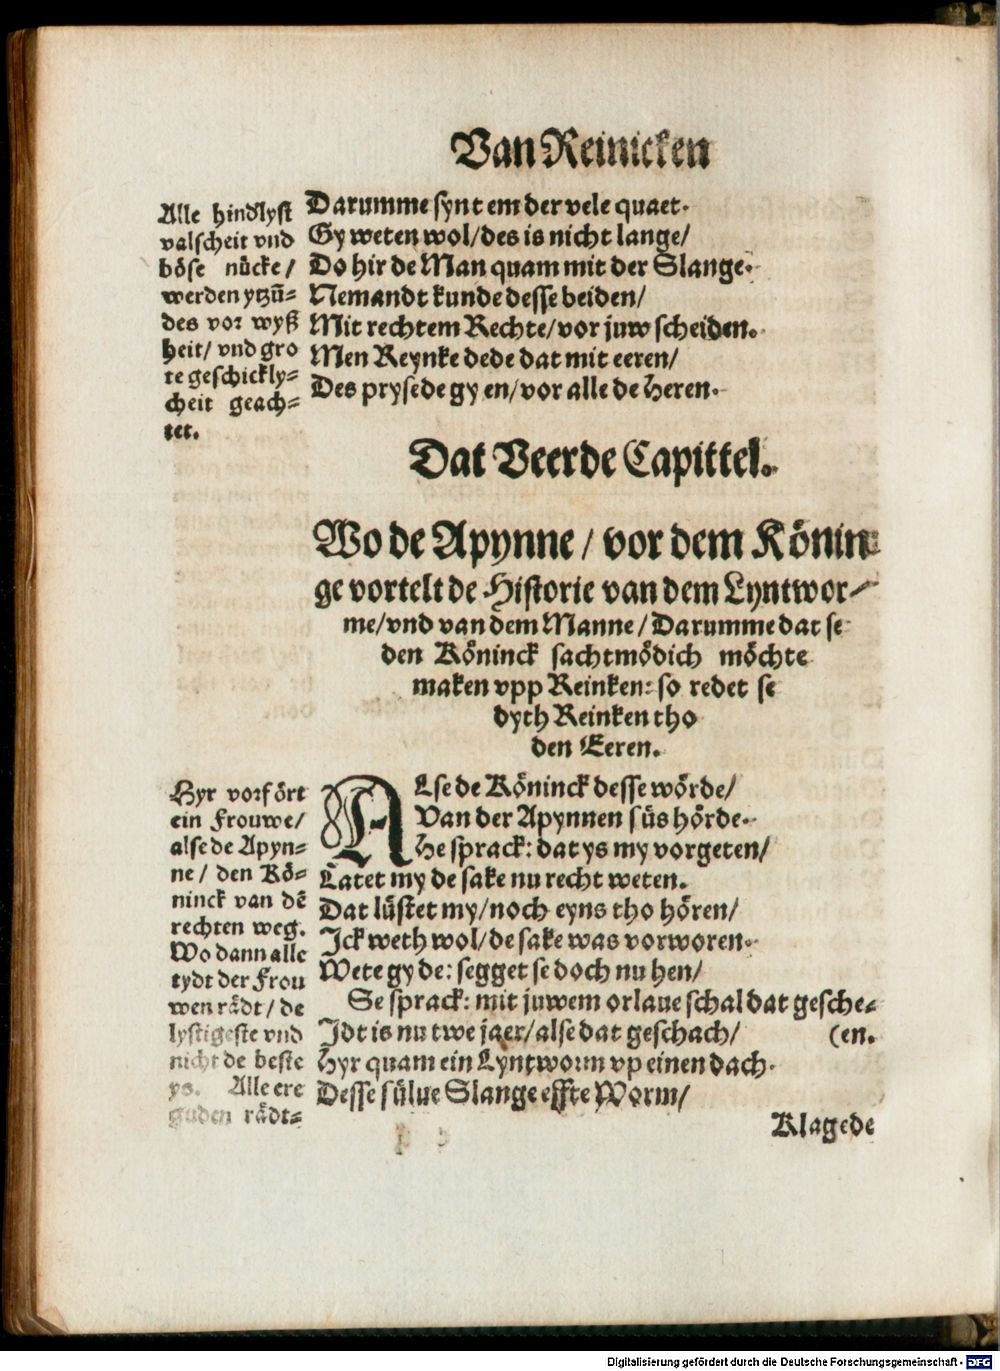 Van Reinicken
Alle hindlyst
valscheit vnd
böse nücke /
werden ytzū-
des vor wyß
heit/ vnd gro
te geschickly-
cheit geach-
tet.
Darumme synt em der vele quaet.
Gy weten wol/des is nicht lange/
Do hir de Man quam mit der Slange.
Nemandt kunde desse beiden/
Mit rechtem Rechte/vor juw scheiden.
Men Reynke dede dat mit eeren/
Des prysede gy en/vor alle de Heren.
Dat Veerde Capittel.
Wo de Apynne / vor dem Könin
ge vortelt de Historie van dem Lyntwor-
me/vnd van dem Manne / Darumme dat se
den Köninck sachtmödich möchte
maken vpp Reinken: so redet se
dyth Reinken tho
den Eeren.
Hyr vorfört
ein Frouwe/
alse de Apyn-
ne / den Kö-
ninck van dē
rechten weg.
Wo dann alle
tydt der Frou
wen rädt / de
lystigeste vnd
nicht de beste
ys. Alle ere
guden rädt-
ALse de Köninck desse wörde/
Van der Apynnen süs hörde.
He sprack: dat ys my vorgeten/
Latet my de sake nu recht weten.
Dat lüstet my/noch eyns tho hören/
Ick weth wol/de sake was vorworen.
Wete gy de: segget se doch nu hen/
Se sprack: mit juwem orlaue schal dat gesche-
(en.
Idt is nu twe jaer/alse dat geschach/
Hyr quam ein Lyntworm vp einen dach.
Desse sülue Slange effte Worm/
Klagede
Digitalisierung gefördert durch die Deutsche Forschungsgemeinschaft - DFG